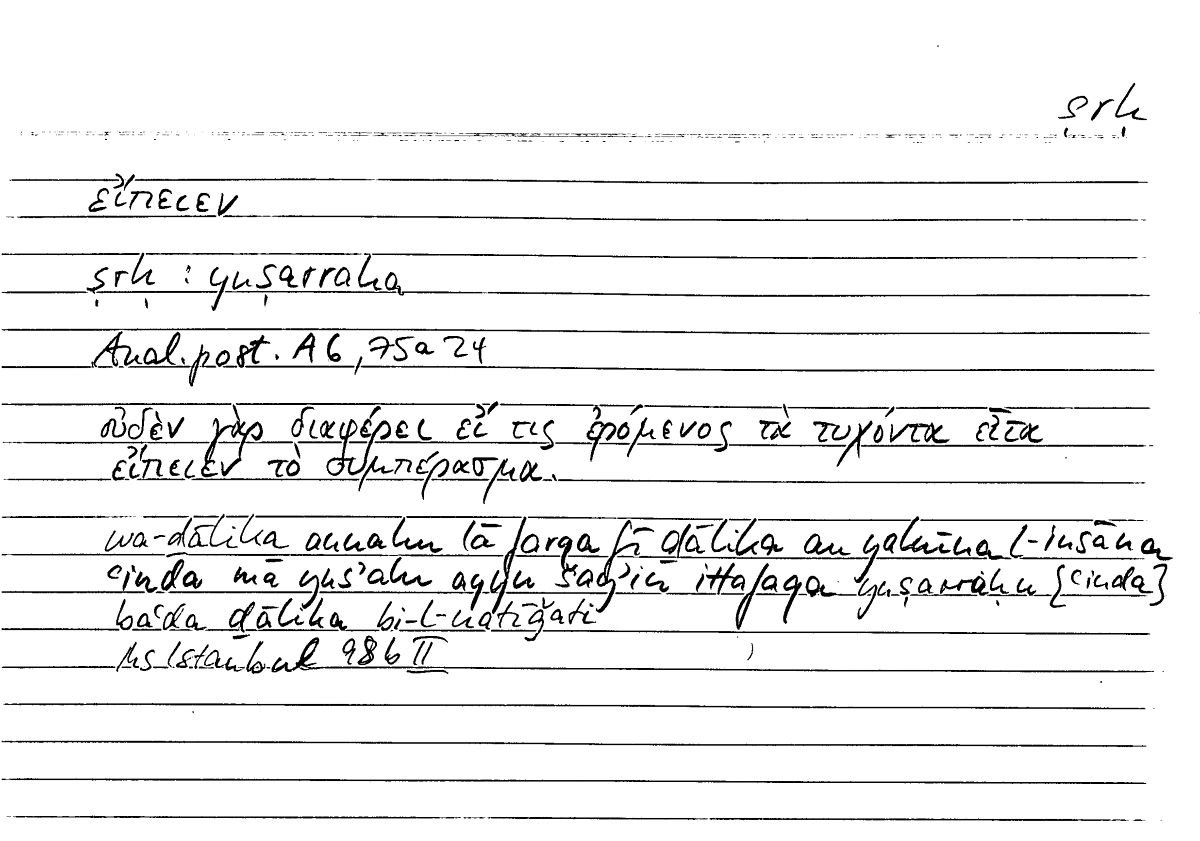 ṣrḥ
εἴπειεν
ṣrḥ : yuṣarraḥa
Anal. post. A 6, 75a 24
οὐδὲν γὰρ διαφέρει εἴ τις ἐρόμενος τὰ τυχόντα εἶτα
εἴπειεν τὸ συμπέρασμα.
wa-ḏālika annahu lā farqa fī ḏālika an yakūna l-insāna
ʿinda mā yusʾalu ayyu šayʾin ittafaqa yuṣarraḥu [ʿinda]
baʿda ḏālika bi-l-natīǧati
Ms Istanbul 986 II